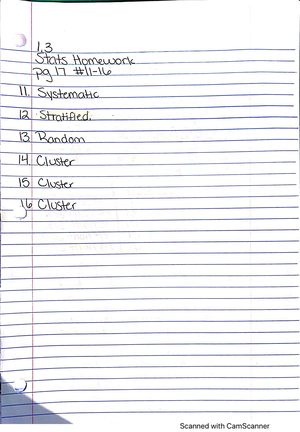 1.3
Stats Homework
pg 17 #11-16
11. Systematic
12 Stratified.
13 Random
14 Cluster
15 Cluster
16 Cluster
Scanned with CamScanner